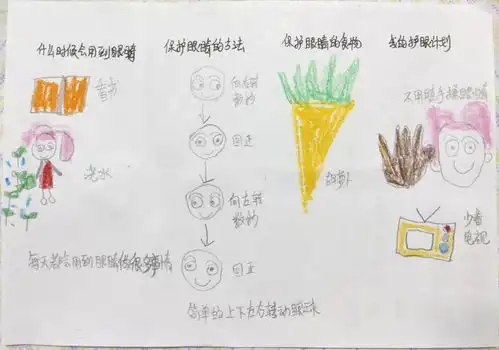 什么时候会用到眼睛
看书
浇水
每天都会用到眼睛做很多事情
保护眼睛的方法
向右转
数秒
回正
向左转
数秒
回正
简单的上下左右转动眼球
保护眼睛的食物
胡萝卜
我的护眼计划
不用脏手揉眼睛
少看
电视